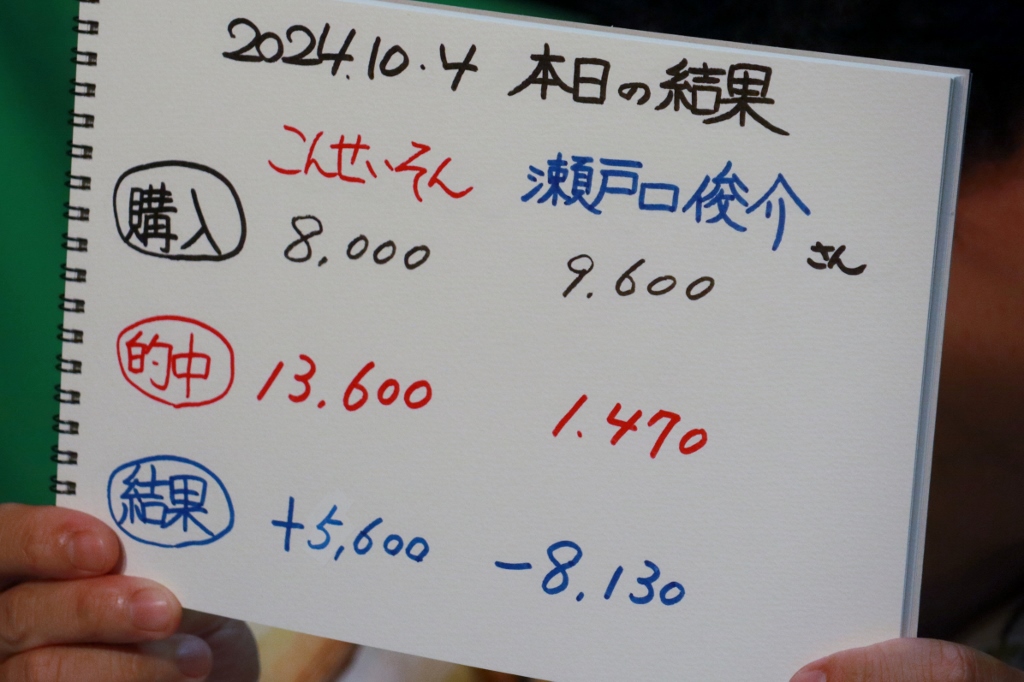 2024.10.4 本日の結果
こんせいそん 瀬戸口俊介さん
購入 8,000 9.600
的中 13.600 1.470
結果 +5,600 -8.130